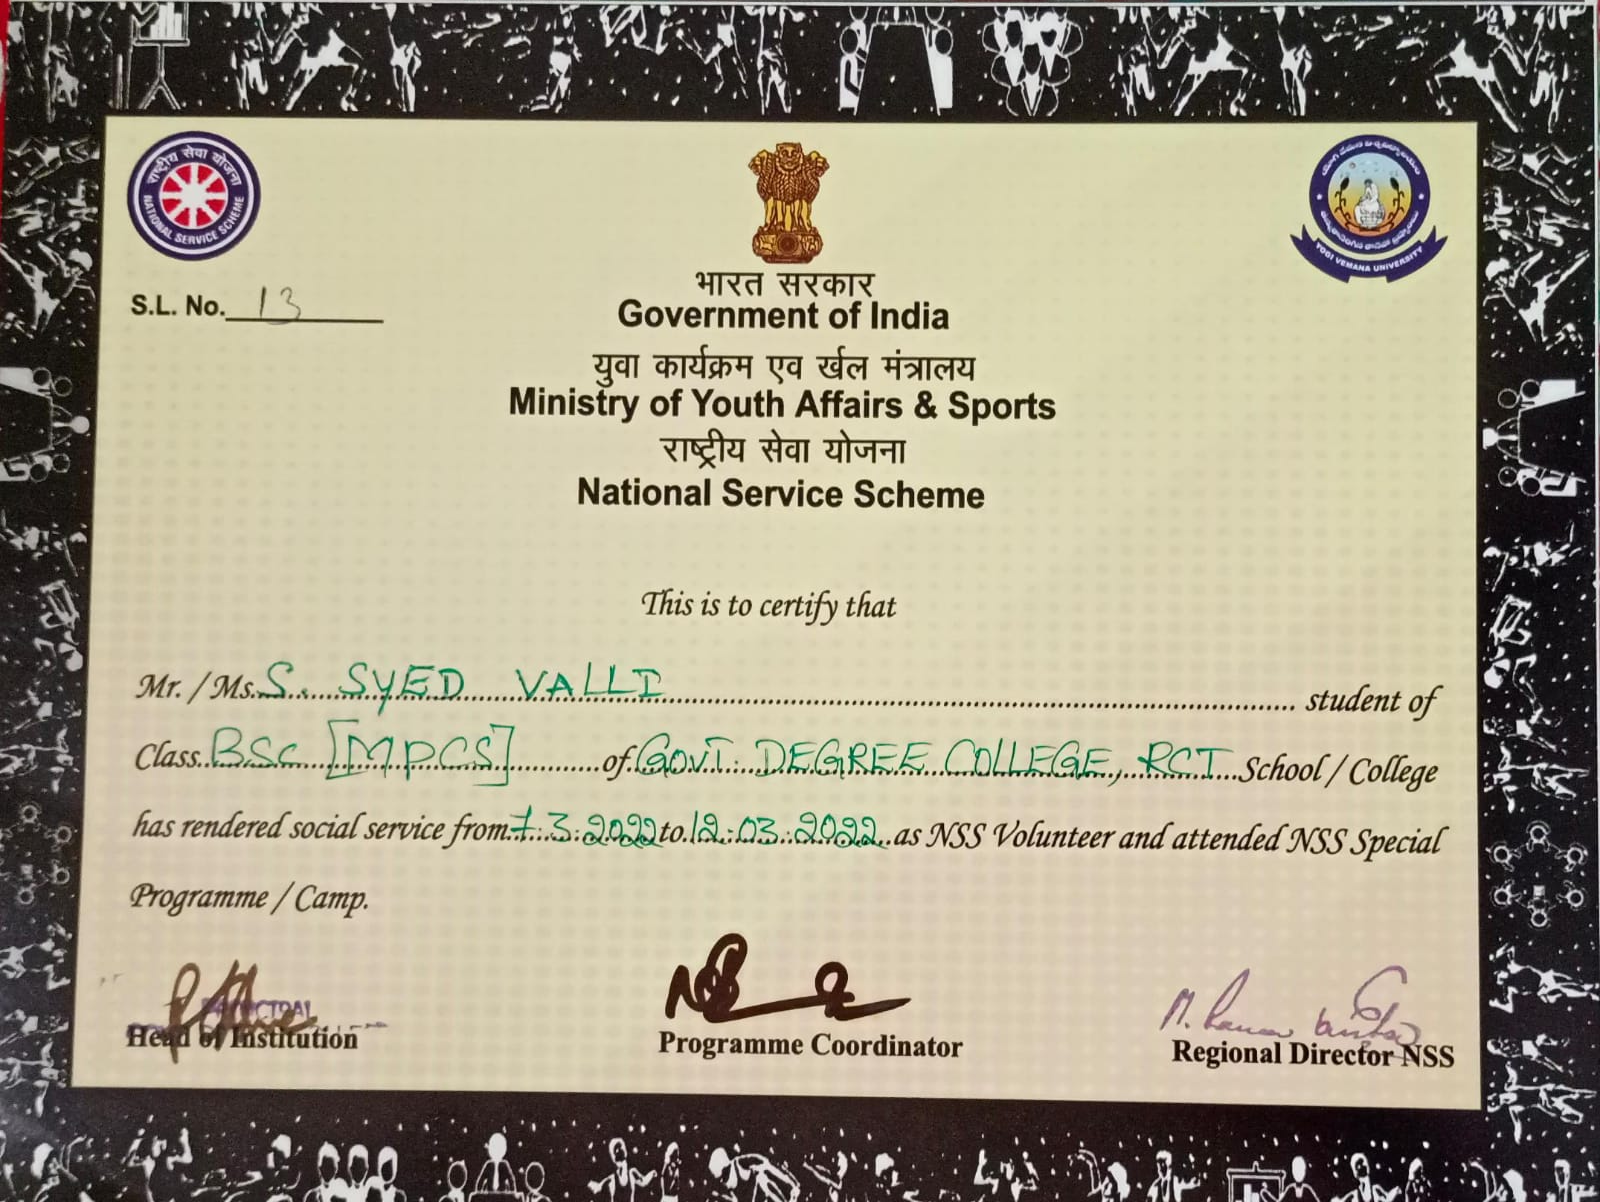 राष्ट्रीय सेवा योजना
NATIONAL SERVICE SCHEME
YOGI VEMANA UNIVERSITY
S.L. No. 13
भारत सरकार
Government of India
युवा कार्यक्रम एव खेल मंत्रालय
Ministry of Youth Affairs & Sports
राष्ट्रीय सेवा योजना
National Service Scheme
This is to certify that
Mr. / Ms. S. SYED VALLI student of
Class BSc [MPCS] of GOVT. DEGREE COLLEGE, RCT School / College
has rendered social service from 7.3.2022 to 12.03.2022 as NSS Volunteer and attended NSS Special
Programme / Camp.
PRINCIPAL
Head of Institution
Programme Coordinator
Regional Director NSS